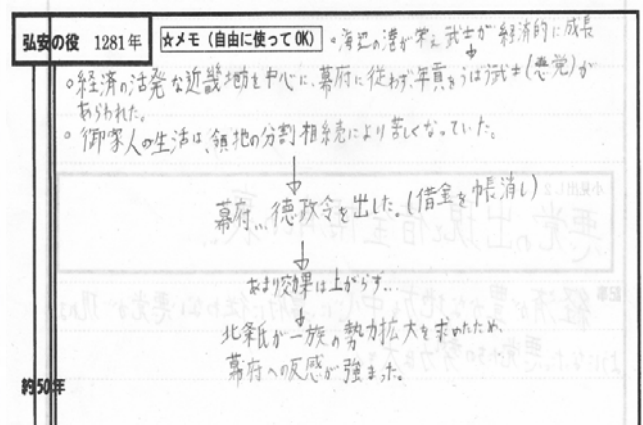 弘安の役 1281年
☆メモ(自由に使ってOK)
。海辺の港が栄え武士が経済的に成長
↓
。経済の活発な近畿地方を中心に、幕府に従わず、年貢をうばう武士(悪党)が
あらわれた。
。御家人の生活は、領地の分割相続により苦しくなっていた。
↓
幕府…徳政令を出した。(借金を帳消し)
↓
あまり効果は上がらず…
↓
北条氏が一族の勢力拡大を求めたため、
幕府への反感が強まった。
約50年